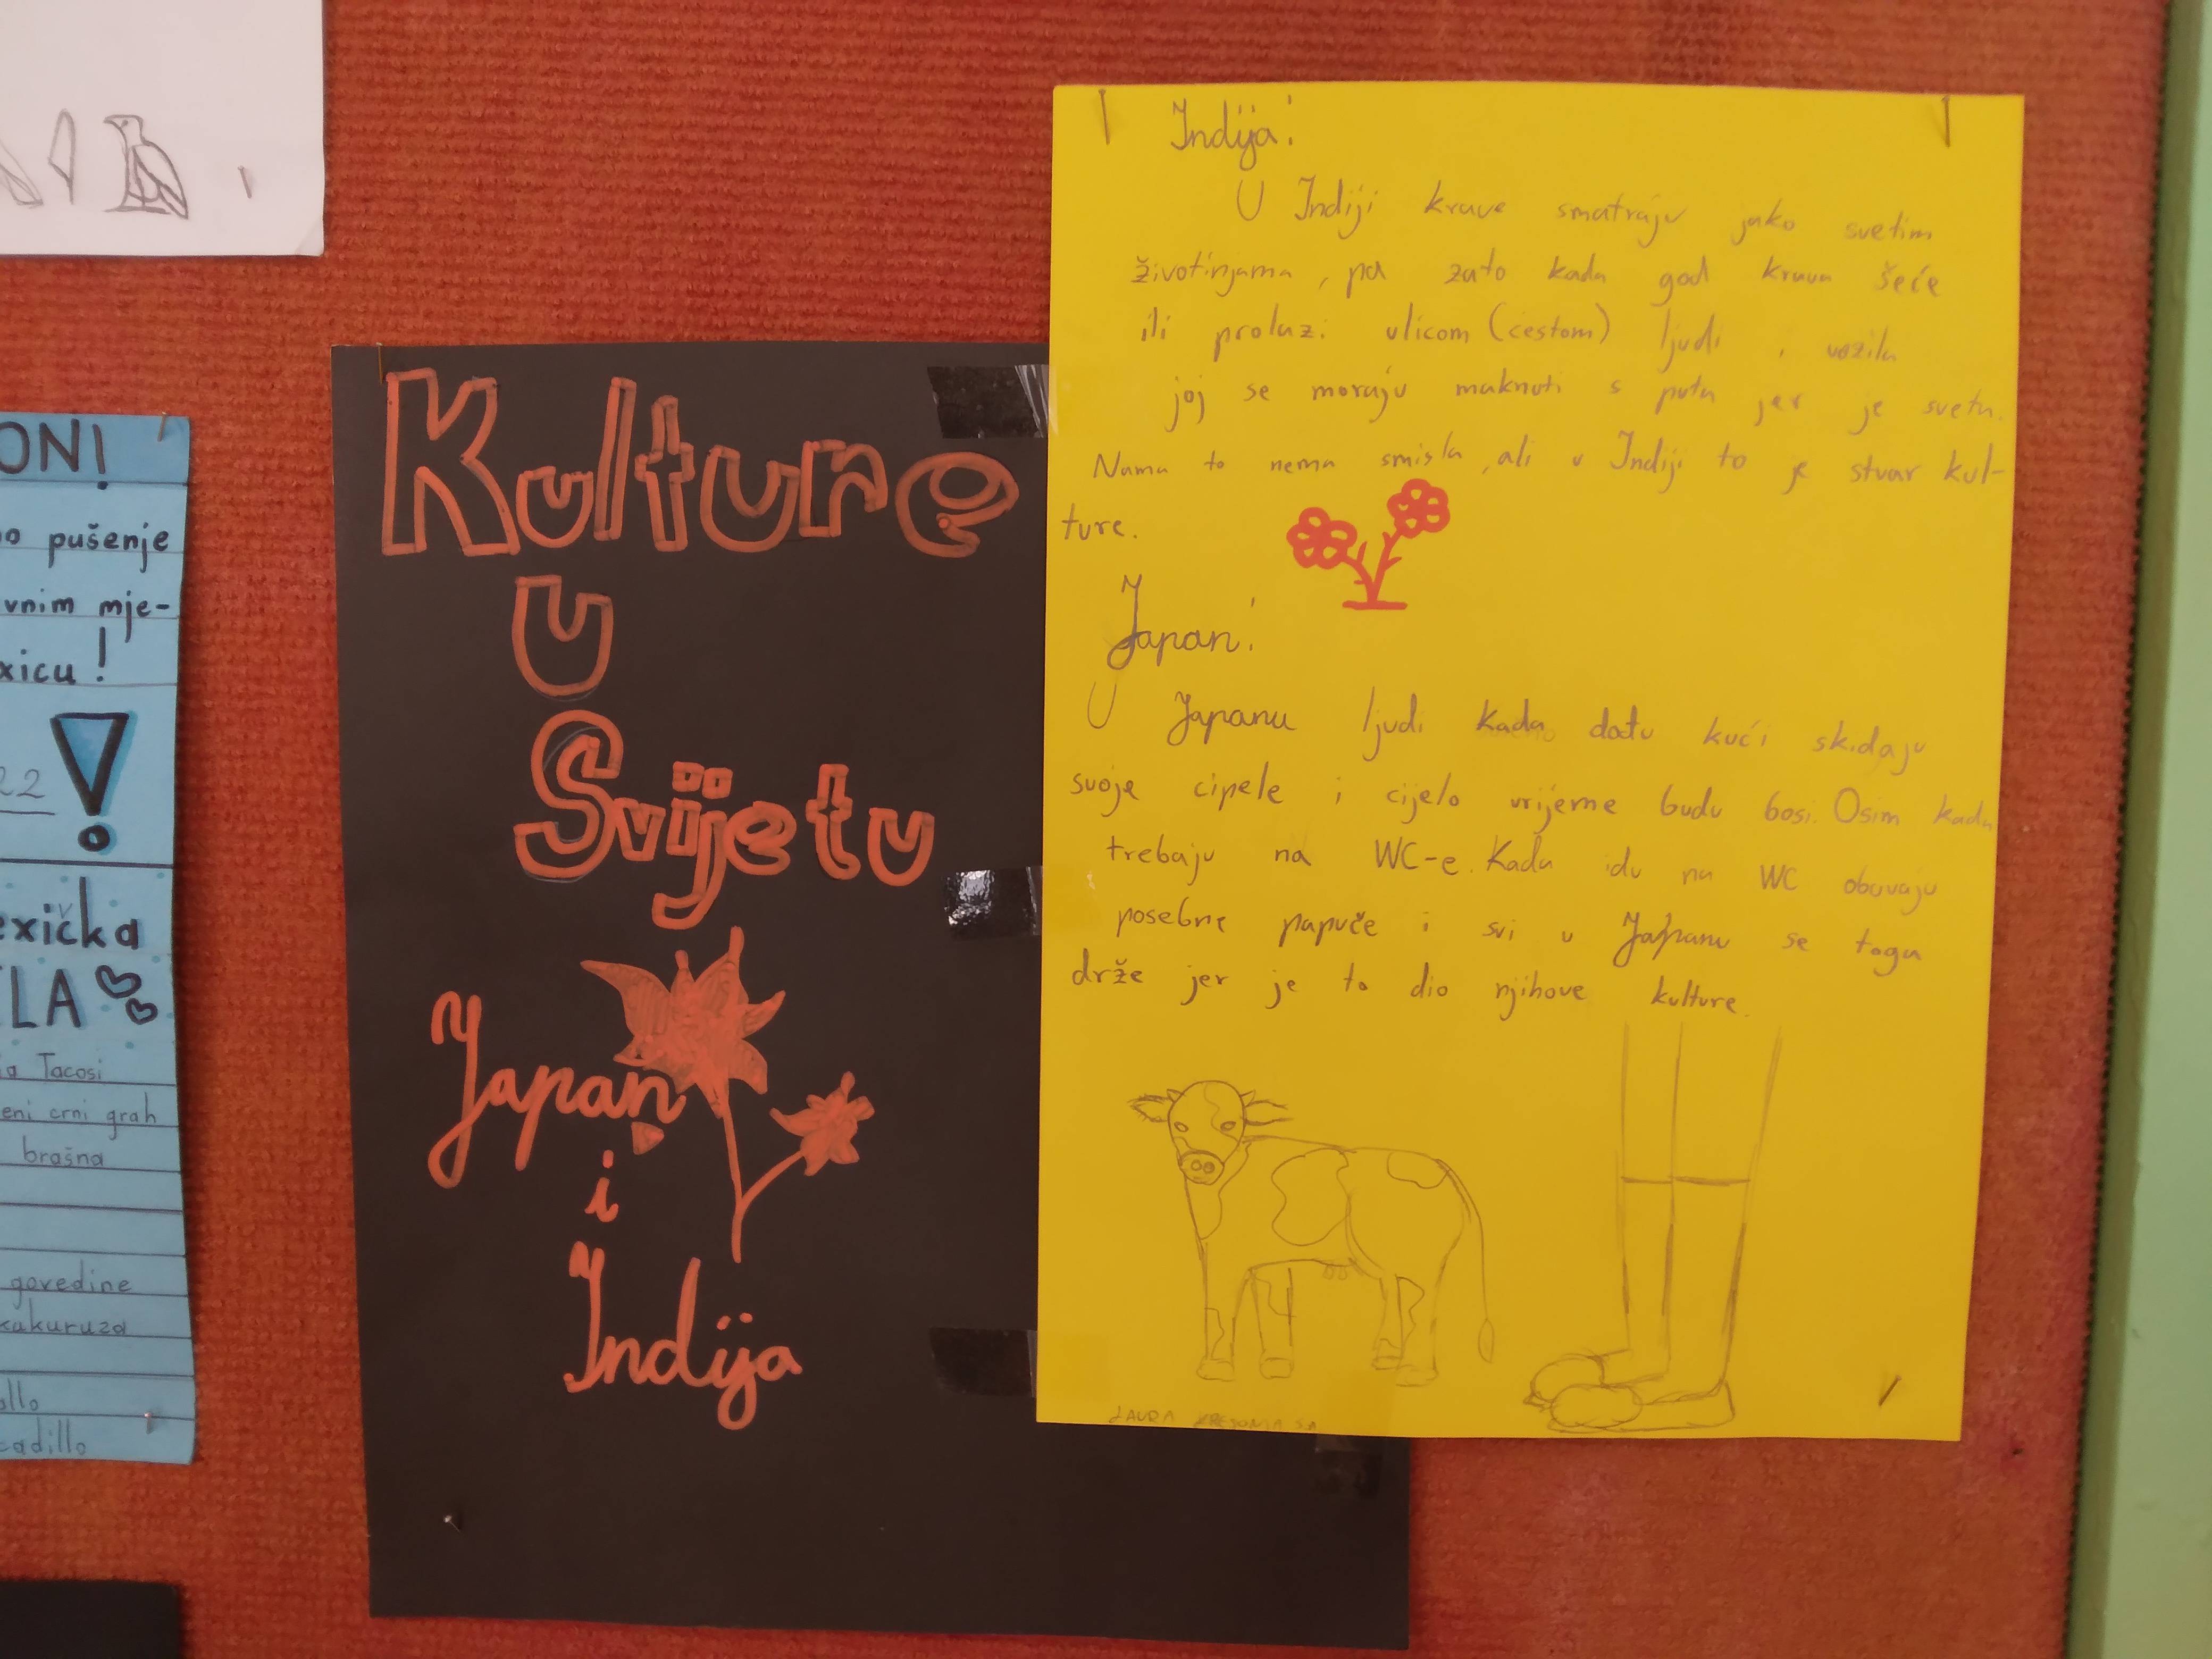 ON!
pušenje
vnim mje-
xicu!
22
exička
LA
Tacosi
eni crni grah
brašna
govedine
kukuruza
allo
cadillo
Kulture
U
Svijetu
Japan
i
Indija
Indija:
U Indiji krave smatraju jako svetim
životinjama, pa zato kada god krava šeće
ili prolazi ulicom (cestom) ljudi i vozila
joj se moraju maknuti s puta jer je sveta.
Nama to nema smisla, ali u Indiji to je stvar kul-
ture.
Japan:
U Japanu ljudi kada dođu kući skidaju
svoje cipele i cijelo vrijeme budu bosi. Osim kada
trebaju na WC-e. Kada idu na WC obuvaju
posebne papuče i svi u Japanu se toga
drže jer je to dio njihove kulture.
LAURA